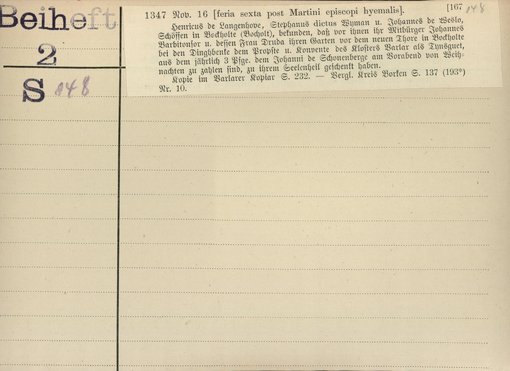 Beiheft
2
S 148
1347 Nov. 16 [feria sexta post Martini episcopi hyemalis]. [167 148
Henricus de Langenhove, Stephanus dictus Wyman u. Johannes de Weslo,
Schöffen in Bockholte (Bocholt), bekunden, daß vor ihnen ihr Mitbürger Johannes
Barbitonsor u. dessen Frau Druda ihren Garten vor dem neuen Thore in Bockholte
bei den Dinghbenke dem Propste u. Konvente des Klosters Varlar als Tynsguet,
aus dem jährlich 3 Pfge. dem Johanni de Schonenberge am Vorabend von Weih-
nachten zu zahlen sind, zu ihrem Seelenheil geschenkt haben.
Kopie im Varlarer Kopiar S. 232. — Vergl. Kreis Borken S. 137 (193*)
Nr. 10.